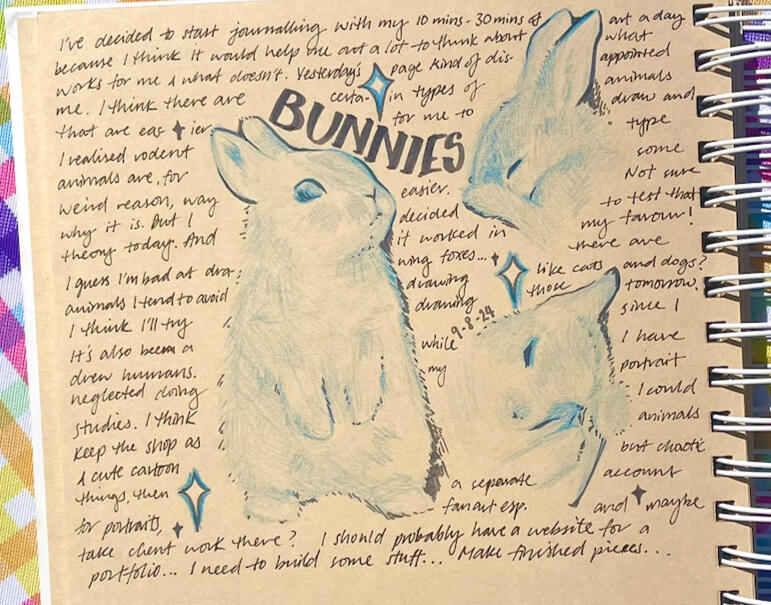 I've decided to start journalling with my 10 mins - 30 mins of art a day
because I think it would help me out a lot to think about what
works for me & what doesn't. Yesterday's page kind of dis- appointed
me. I think there are certa- in types of animals
that are eas ier for me to draw and
BUNNIES
I realised rodent type
animals are, for some
weird reason, way easier. Not sure
why it is. But I decided to test that
theory today. And it worked in my favour!
I guess I'm bad at dra- wing foxes... there are
animals I tend to avoid drawing like cats and dogs?
I think I'll try drawing those tomorrow.
9-8-24
It's also been a while since I
drew humans. my I have
neglected doing portrait
studies. I think I could
keep the shop as animals
& cute cartoon but chaotic
things, then a separate account
for portraits, fanart esp. and maybe
take client work there? I should probably have a website for a
portfolio... I need to build some stuff... Make finished pieces...